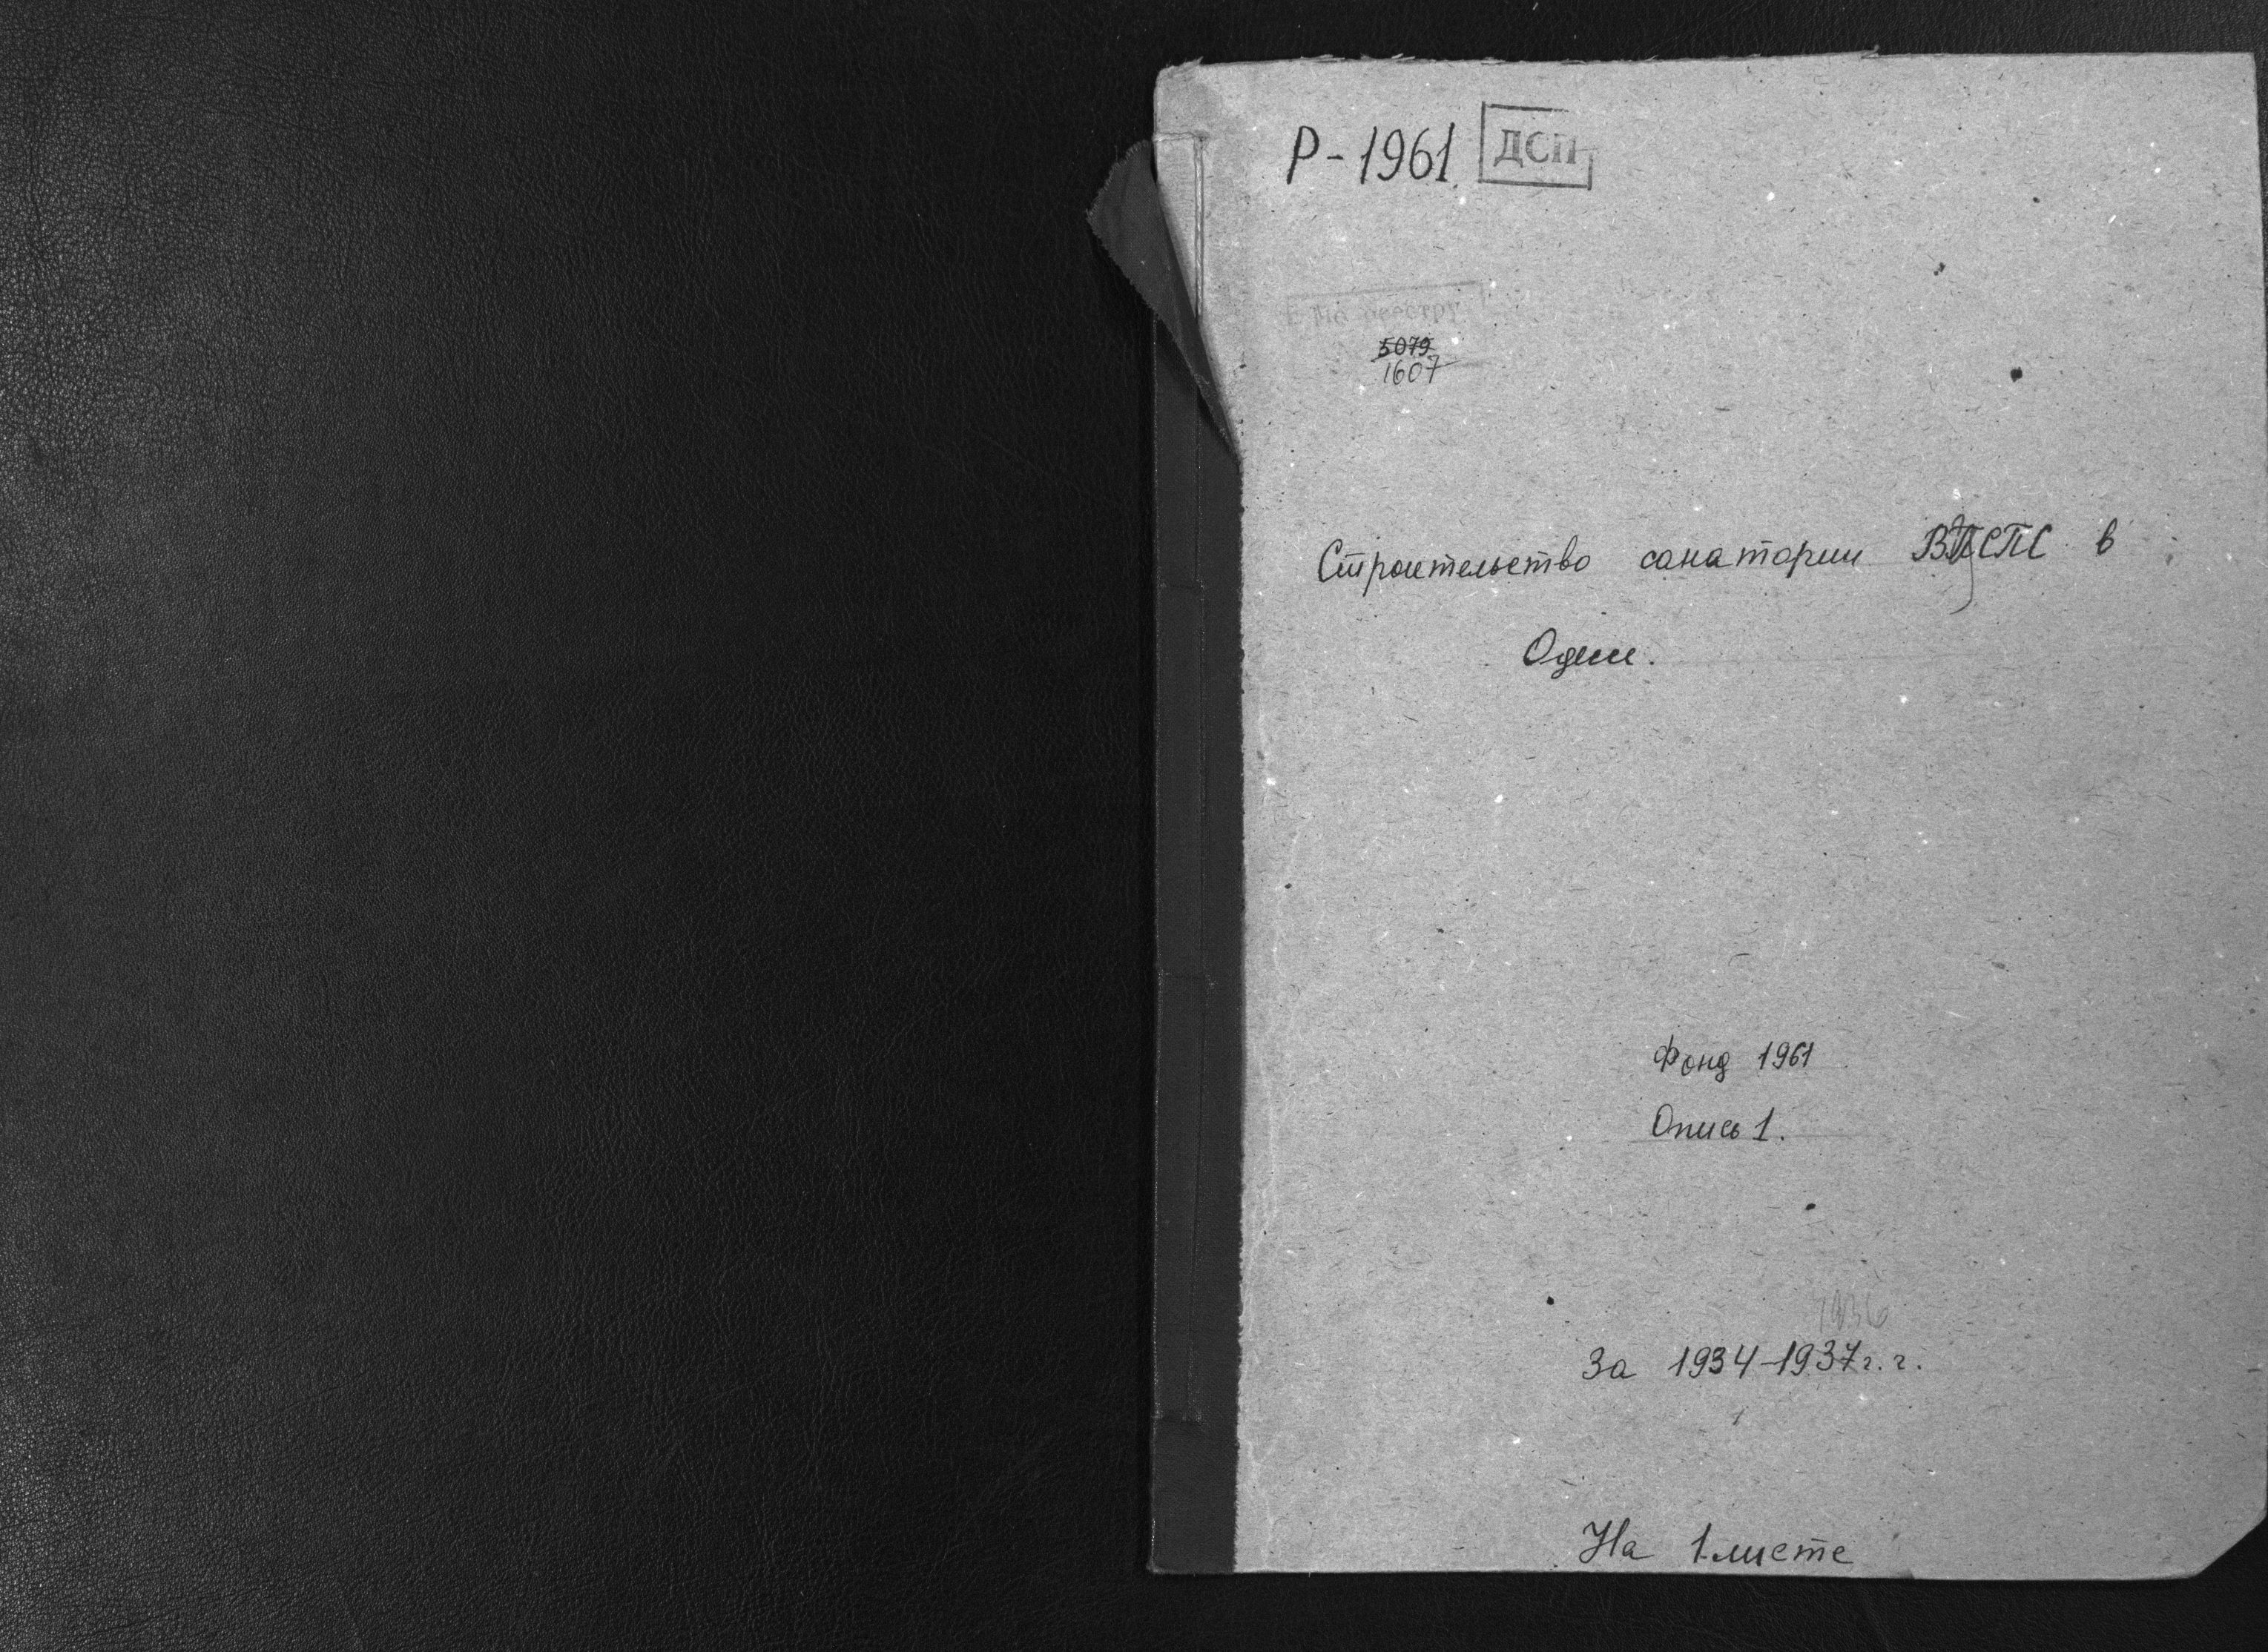 Р-1961 ДСП
по реестру
5079
1607
Строительство санатории ВЦСПС в
Одессе.
Фонд 1961
Опись 1.
1936
За 1934-1937 г.г.
На 1 листе